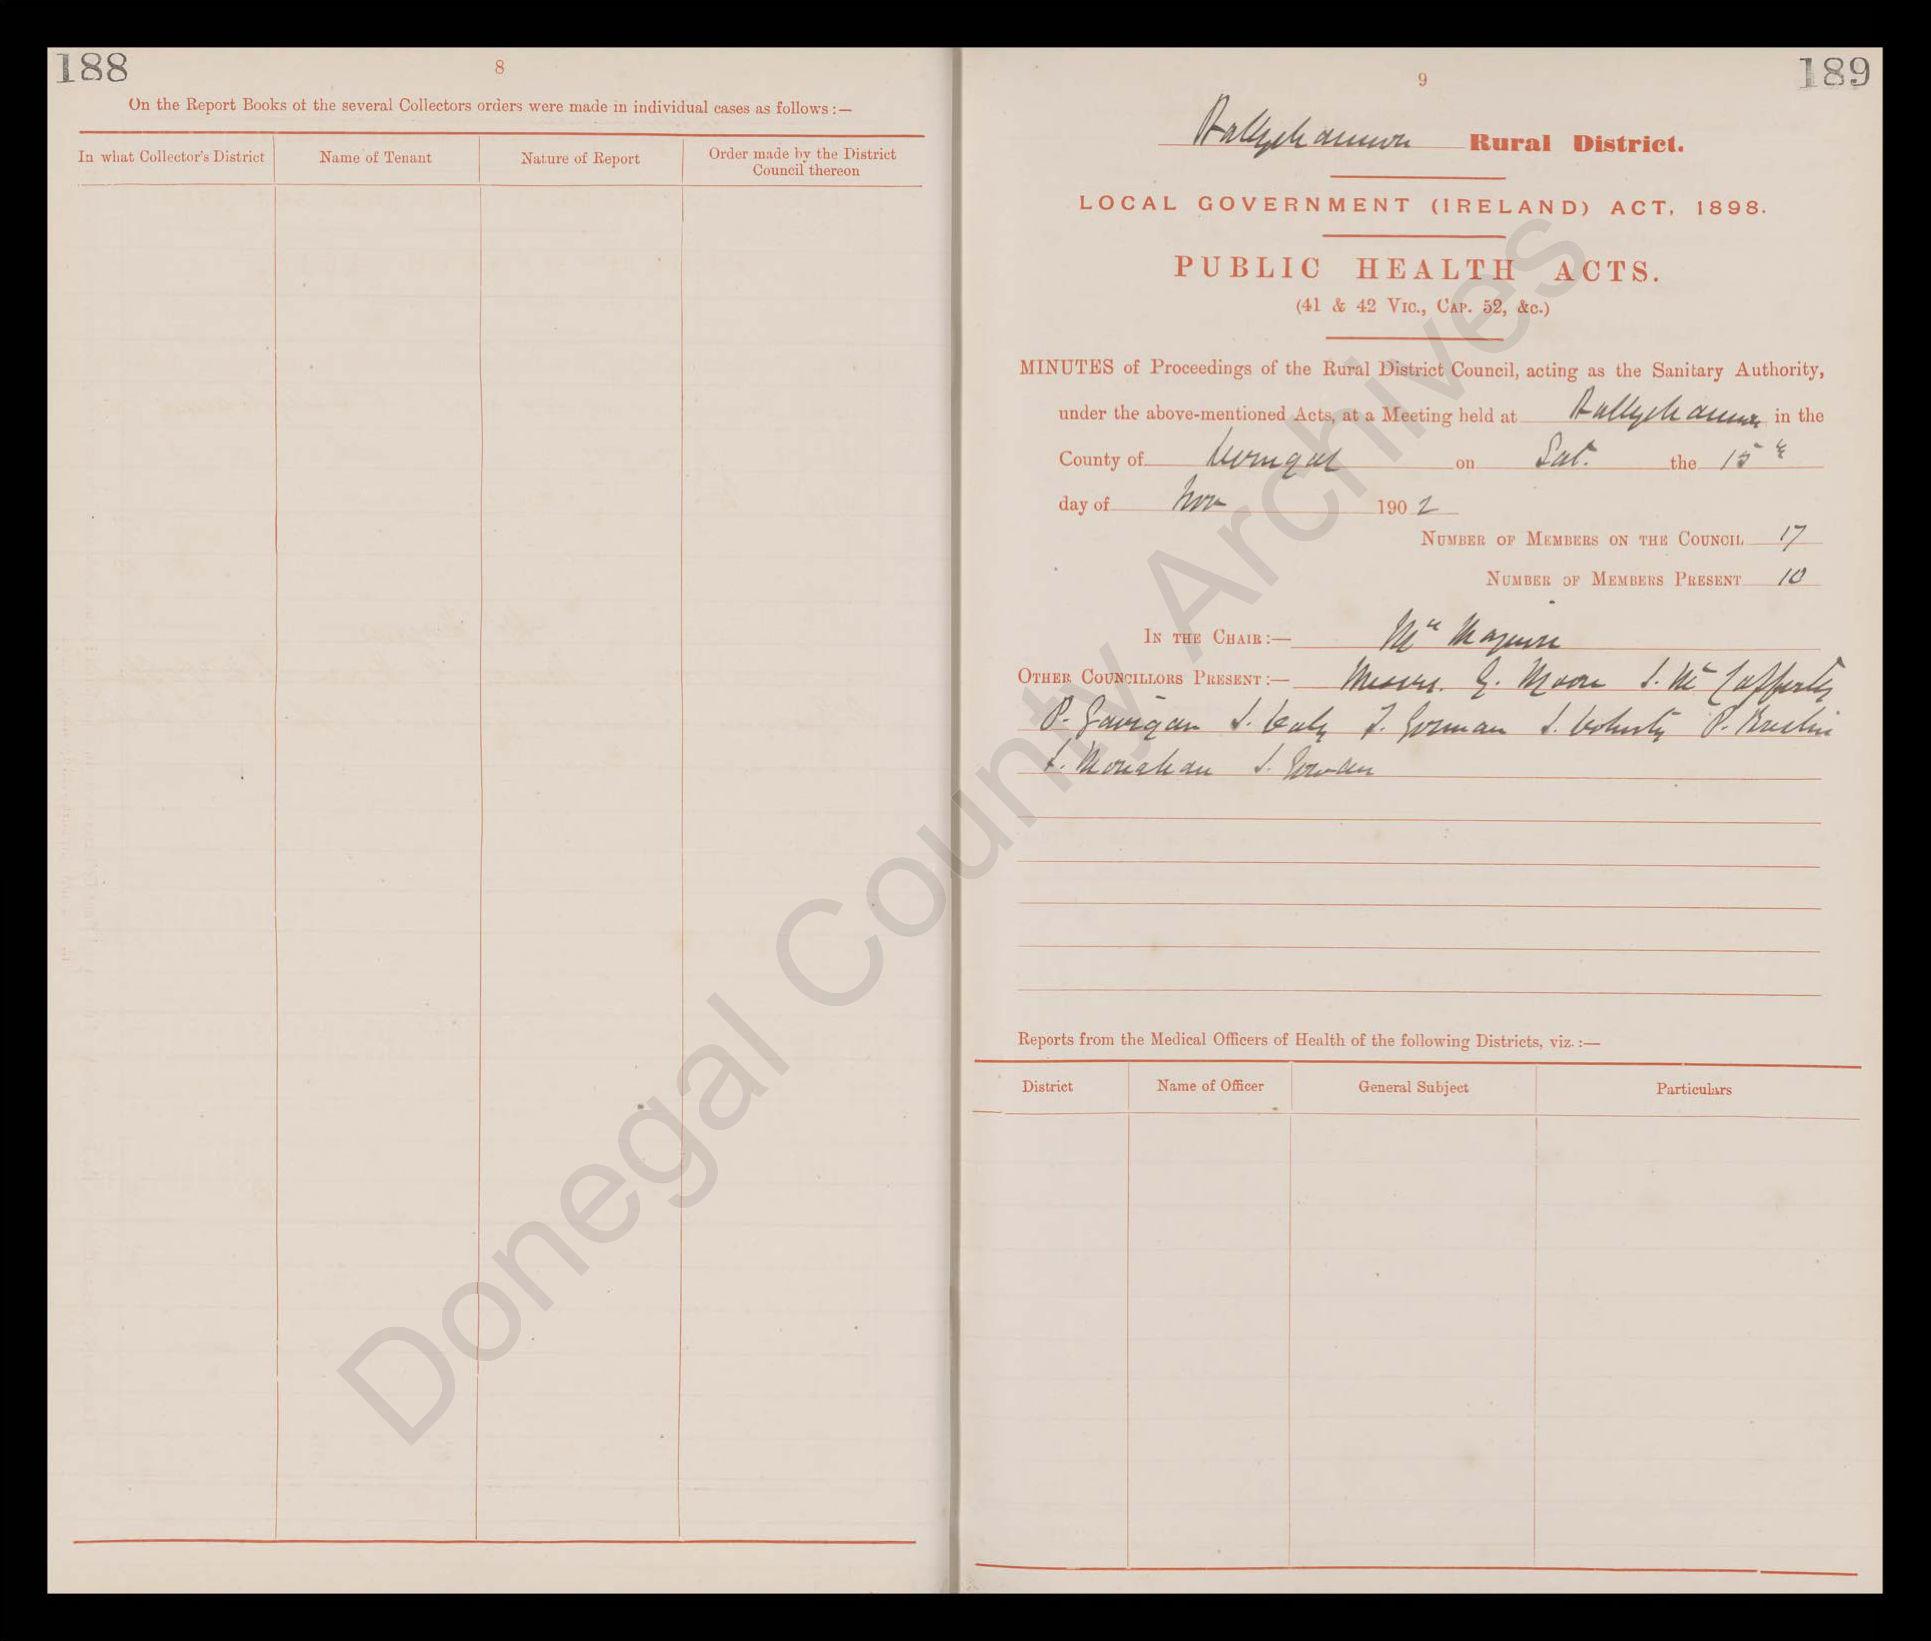 188
8
On the Report Books of the several Collectors orders were made in individual cases as follows :—
In what Collector's District
Name of Tenant
Nature of Report
Order made by the District
Council thereon
189
9
Ballyshannon Rural District.
LOCAL GOVERNMENT (IRELAND) ACT, 1898.
PUBLIC HEALTH ACTS.
(41 & 42 Vic., Cap. 52, &c.)
MINUTES of Proceedings of the Rural District Council, acting as the Sanitary Authority,
under the above-mentioned Acts, at a Meeting held at Ballyshannon in the
County of Donegal on Sat. the 15th
day of Nov 1902
Number of Members on the Council 17
Number of Members Present 10
In the Chair :— Mr Maguire
Other Councillors Present :— Messrs. G. Moore J. McCafferty
P. Gavigan J. Daly T. Gorman J. Doherty P. Breslin
J. Monahan J.
Reports from the Medical Officers of Health of the following Districts, viz. :—
District
Name of Officer
General Subject
Particulars
Donegal County Archives